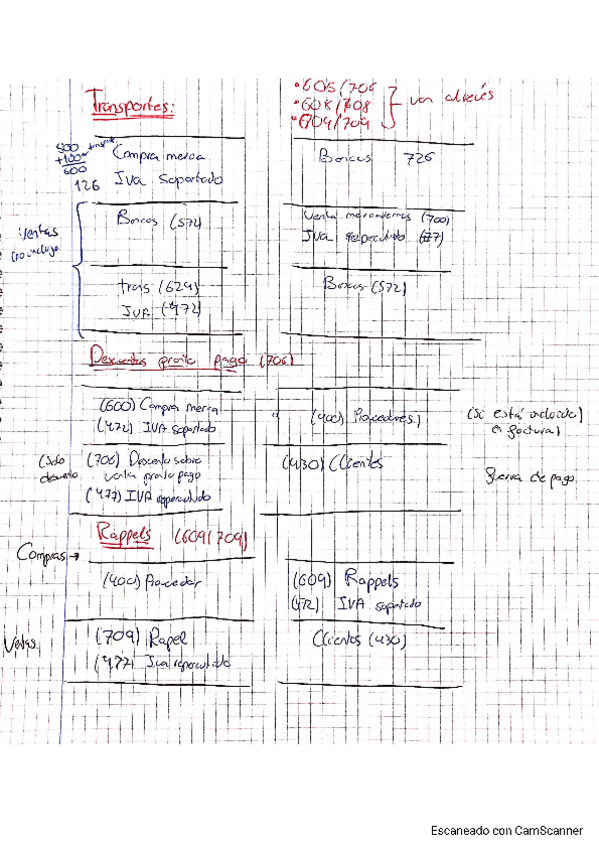 Transportes:
• 606/706
• 608/708
• 609/709
van al revés
500
+100
600
126
Compra merca
Iva Soportado
Bancos 726
Ventas
Bancos (572)
Venta mercaderías (700)
IVA repercutido (477)
trans (624)
IVA (472)
Bancos (572)
Descuentos pronto pago (706)
(600) Compra merca
(472) IVA soportado
(400) Proveedores)
(si está incluido)
en factura)
(Solo
descuento
(706) Descuento sobre
venta pronto pago
(477) IVA repercutido
(430) Clientes
fuera de pago
Rappels (609/709)
Compras →
(400) Proveedor
(609) Rappels
(472) IVA soportado
Ventas
(709) Rapel
(477) Iva repercutido
Clientes (430)
Escaneado con CamScanner